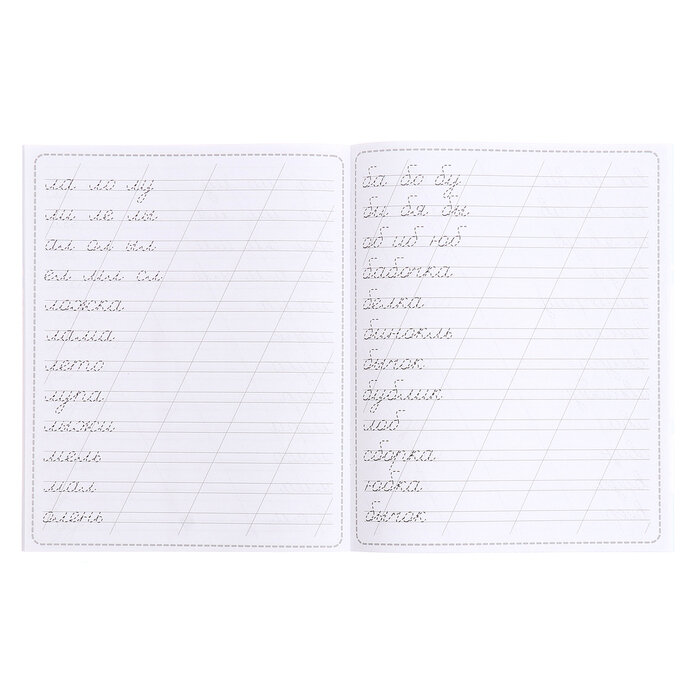 ла ло лу
ли ле лы
ал ол ыл
ел ил сл
ложка
лама
лето
лупа
лыжи
мель
мал
олень
ба бо бу
би бя бы
об иб юб
бабочка
белка
бинокль
бычок
бублик
лоб
сборка
юбка
бычок